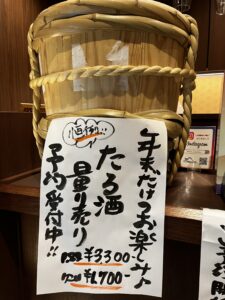 年末だけのお楽しみ♪
たる酒
量り売り
予約受付中!!
¥3300
¥1,700-
Instagram